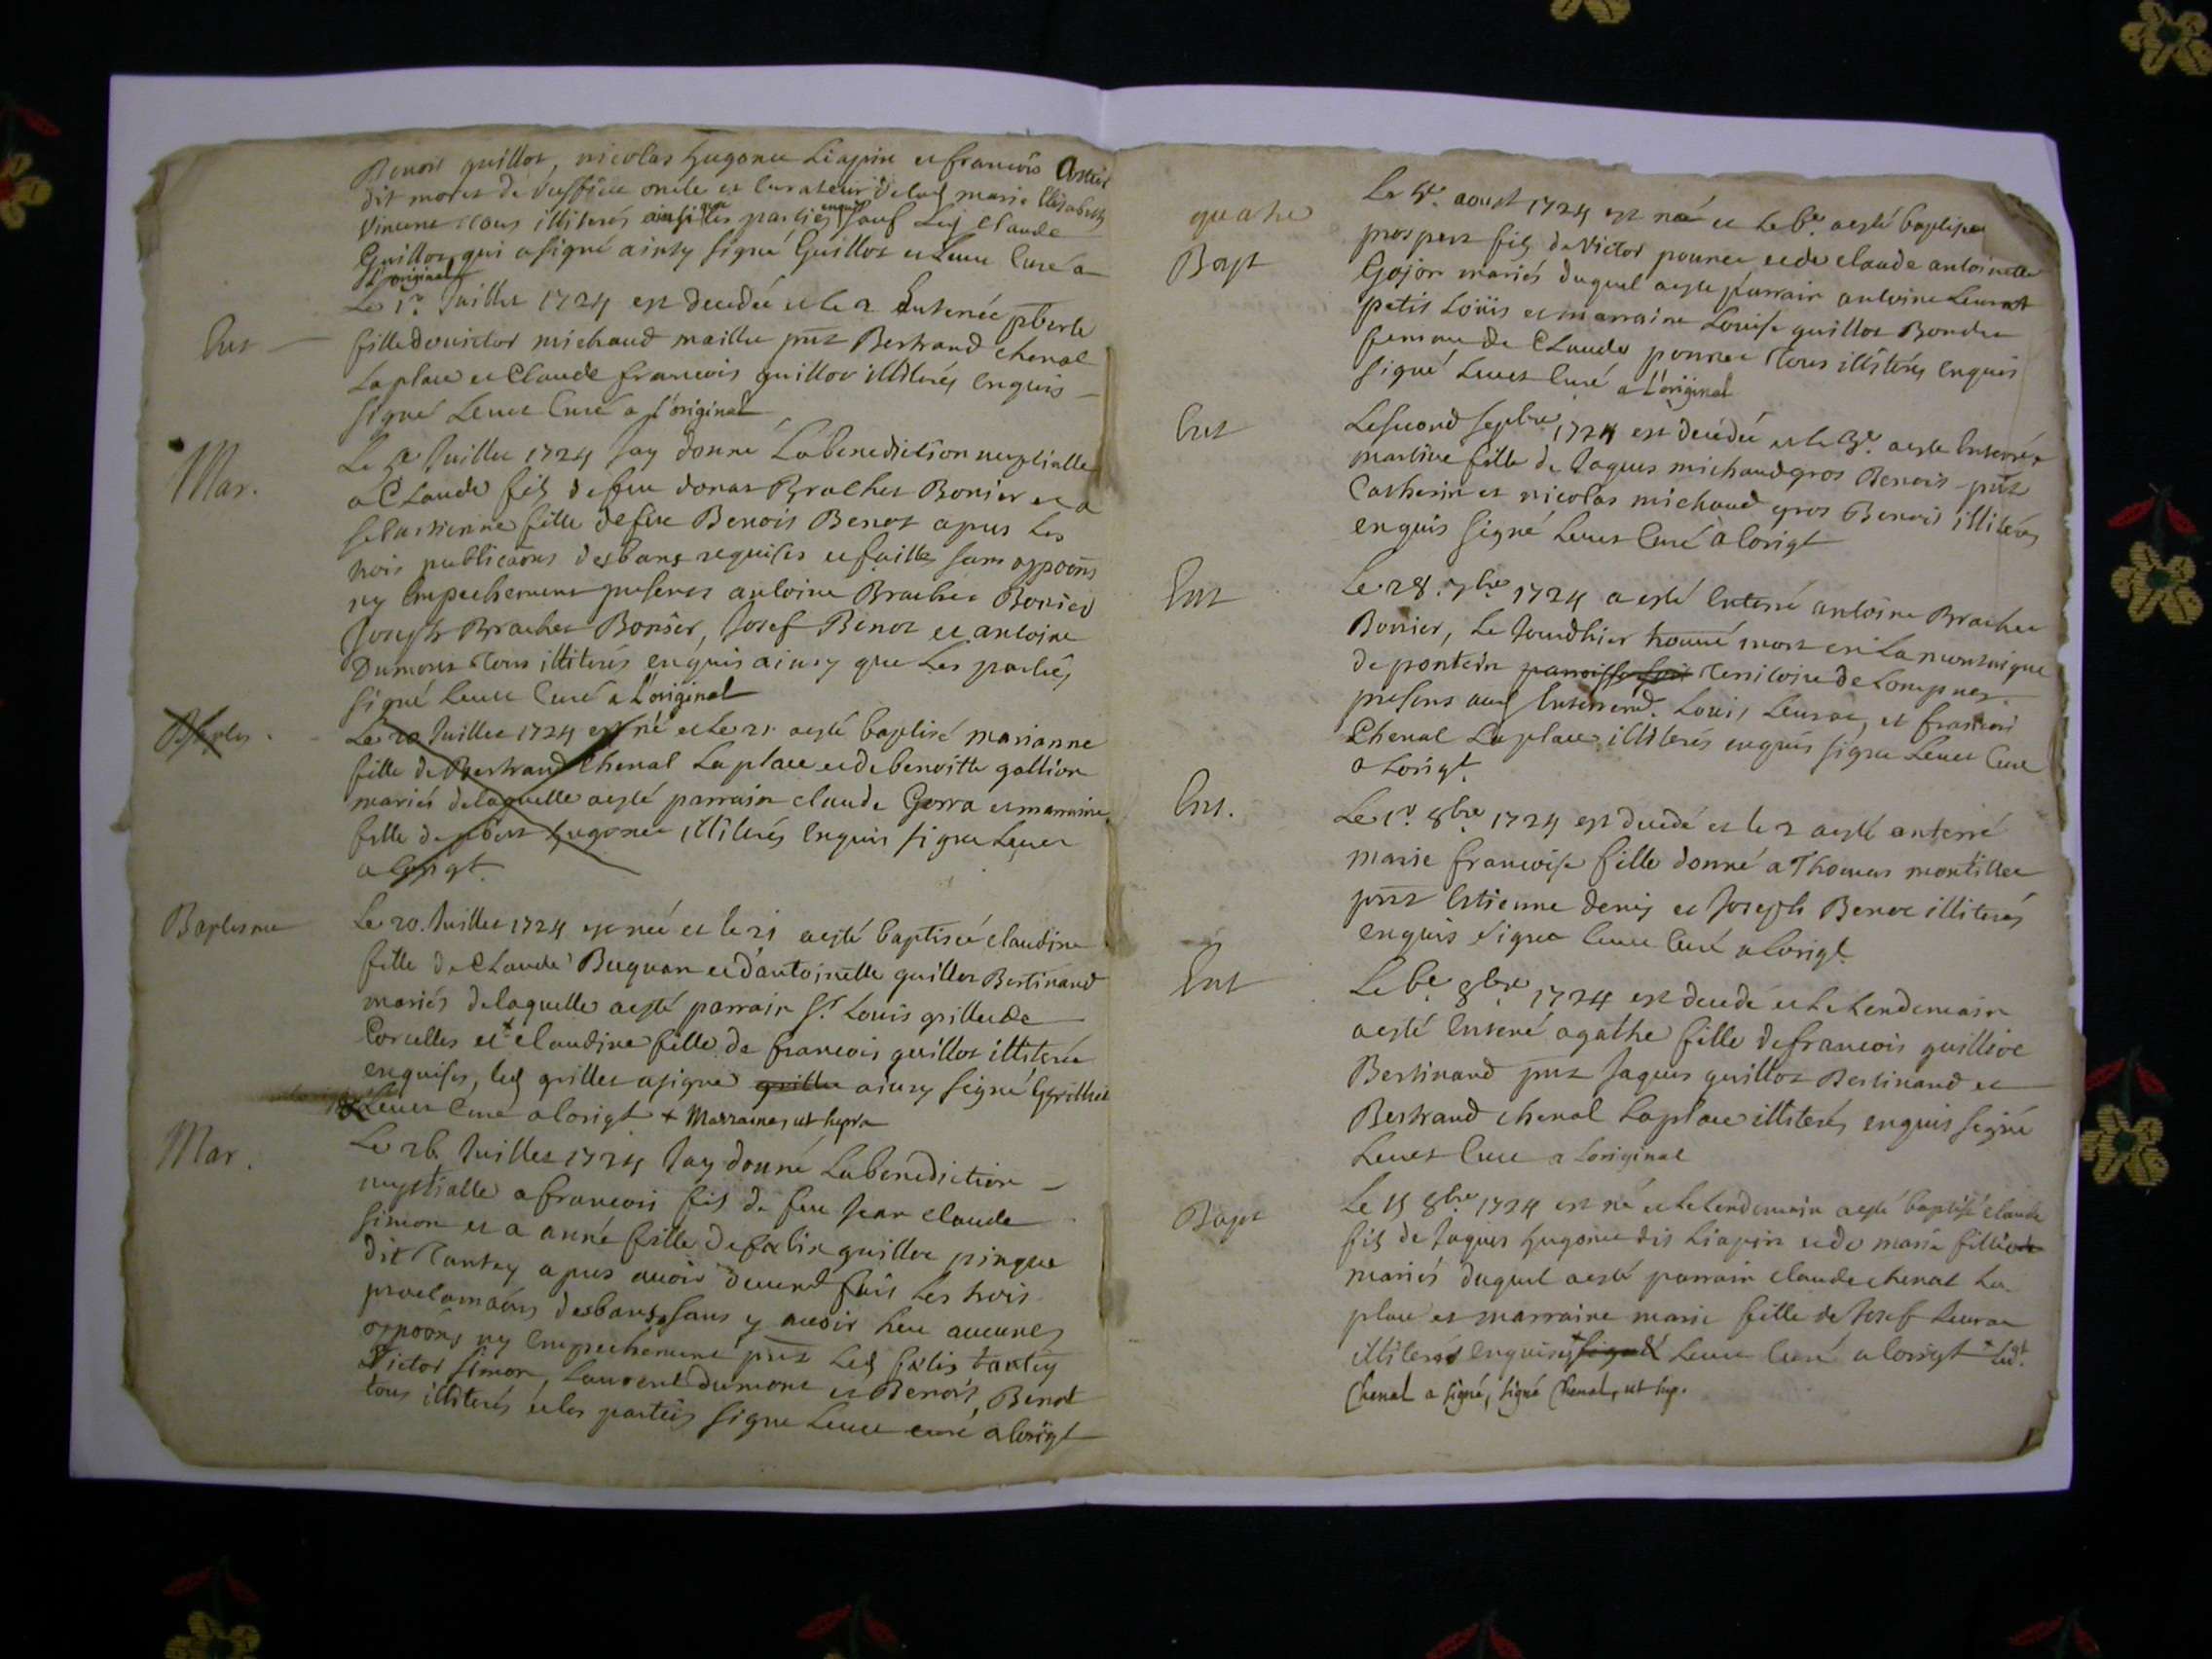 Benoit guillot, nicolas hugonet Liapin et francois
dit moret de oncle et curateur de lad marie Elisabeth
Vincent tous illiterés ainsi que les parties enquis sauf led Claude
Guillot qui a signé ainsy signé Guillot et Leuet Curé a
L'original
Ent
Le 1r. Juillet 1724 est decedée et le 2 Enterrée
fille de victor michaud maillet pnt Bertrand chenal
Laplace et Claude francois guillot illiterés enquis
signé Leuet Curé a L'original
Mar.
Le Juillet 1724 Jay donné La benediction nuptialle
a Claude fils de feu donat Brachet Bonier et a
sebastienne fille de feu Benoit Benot apres Les
trois publicaons des bans requises et faittes sans oppoons
ny Empechement presents antoine Brachet Bonier
Joseph Brachet Bonier, Josef Benot et antoine
Dumont tous illiterés enquis ainsy que Les parties
signé Leuet Curé a L'original
Le 20 Juillet 1724 est né et le 21 aesté baptisé marianne
fille de Bertrand Chenal Laplace et de benoitte gallion
mariés delaquelle aesté parrain claude Gorra et marraine
fille de hugonet illiterés Enquis signé Leuet
a Lorigt
Baptesme
Le 20. Juillet 1724 est née et le 21 aesté baptisée claudine
fille de Claude Buquan et d'antoinette guillot Bertinand
mariés delaquelle aesté parrain Sr. Louis grillet de
Corcelles et + claudine fille de francois guillot illiterée
enquises, led grillet a signé grillet ainsy signé Grillet
& Leuet Curé a Lorigt + Marraine, ut supra
Mar.
Le 26 Juillet 1724 Jay donné La benediction
nuptialle a francois fils de feu Jean claude
simon et a anne fille de felix guillot pinque
dit Tantey apres avoir deuend fait Les trois
proclamaons des bans, sans y avoir heu aucunes
oppoons ny Empechement pnt Led felix tantey
Victor simon, Laurent Dumont et Benoit, Benot
tous illiterés et les parties signé Leuet curé a Lorigt
quatre
Bapt
Le 5e. aoust 1724 est né et le 6e. aesté baptisé
prospert fils de Victor pounet et de claude antoinette
Gojon mariés duquel aesté parrain antoine Leurat
petit Loüis et marraine Louise guillot Bondet
femme de Claude pounet tous illiterés enquis
signé Leuet Curé a L'original
Ent
Le second septbre 1724 est decedée et le 3e. aesté Enterrée
martine fille de Jaques michaud gros Benoit pnt
Catherin et nicolas michaud gros Benoit illiterés
enquis signé Leuet Curé a Lorigt
Ent
Le 28. 7bre 1724 a esté Enterré antoine Brachet
Bonier, Le Jourdhier trouué mort en La montaigne
de pontein territoire de Lompnes
presens aud Enterremt. Louis Leurat, et francois
Chenal Laplace illiterés enquis signé Leuet Curé
a Lorigt.
Ent.
Le 1r. 8bre 1724 est decedé et le 2 aesté anterré
marie francoise fille donné a Thomas montillet
pnt Estienne Denis et Joseph Benot illiterés
enquis signé Leuet Curé a Lorigt
Ent
Le 6e. 8bre 1724 est decedé et Le Lendemain
aesté Enterré agathe fille de francois guillot
Bertinand pnt Jaques guillot Bertinand et
Bertrand chenal Laplace illiterés enquis signé
Leuet Curé a Loriginal
Bapt
Le 15 8bre 1724 est né et Le Lendemain aesté baptisé claude
fils de Jaques hugonet dit Liapin et de marie
mariés duquel aesté parrain claude chenal La
place et marraine marie fille de Josef Leurat
illiterés enquis + signé Leuet Curé a Lorigt + Ledt.
Chenal a signé, signé Chenal, ut sup.